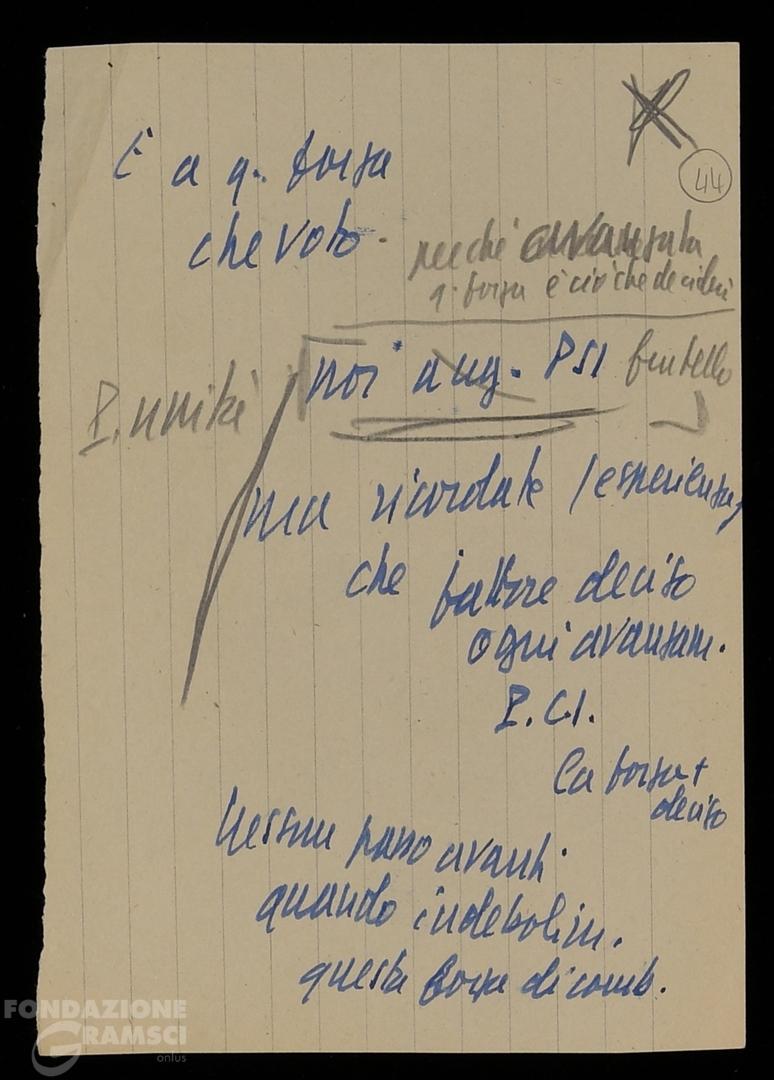 44
È a q. forza
che voto.
perché avanzata
q. forza è ciò che decideri
noi aug. PSI fratello
P. unità
ma ricordate l'esperienza,
che fattore deciso
ogni avanzam.
P.C.I.
la forza +
deciso
Nessun passo avanti
quando indebolim.
questa forza di comb.
FONDAZIONE
GRAMSCI
onlus